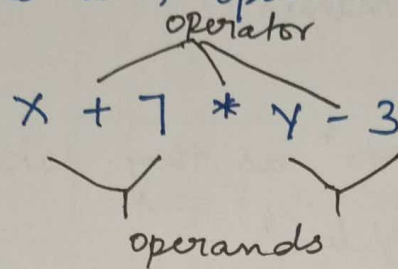 operator
X + 7 * Y - 3
operands